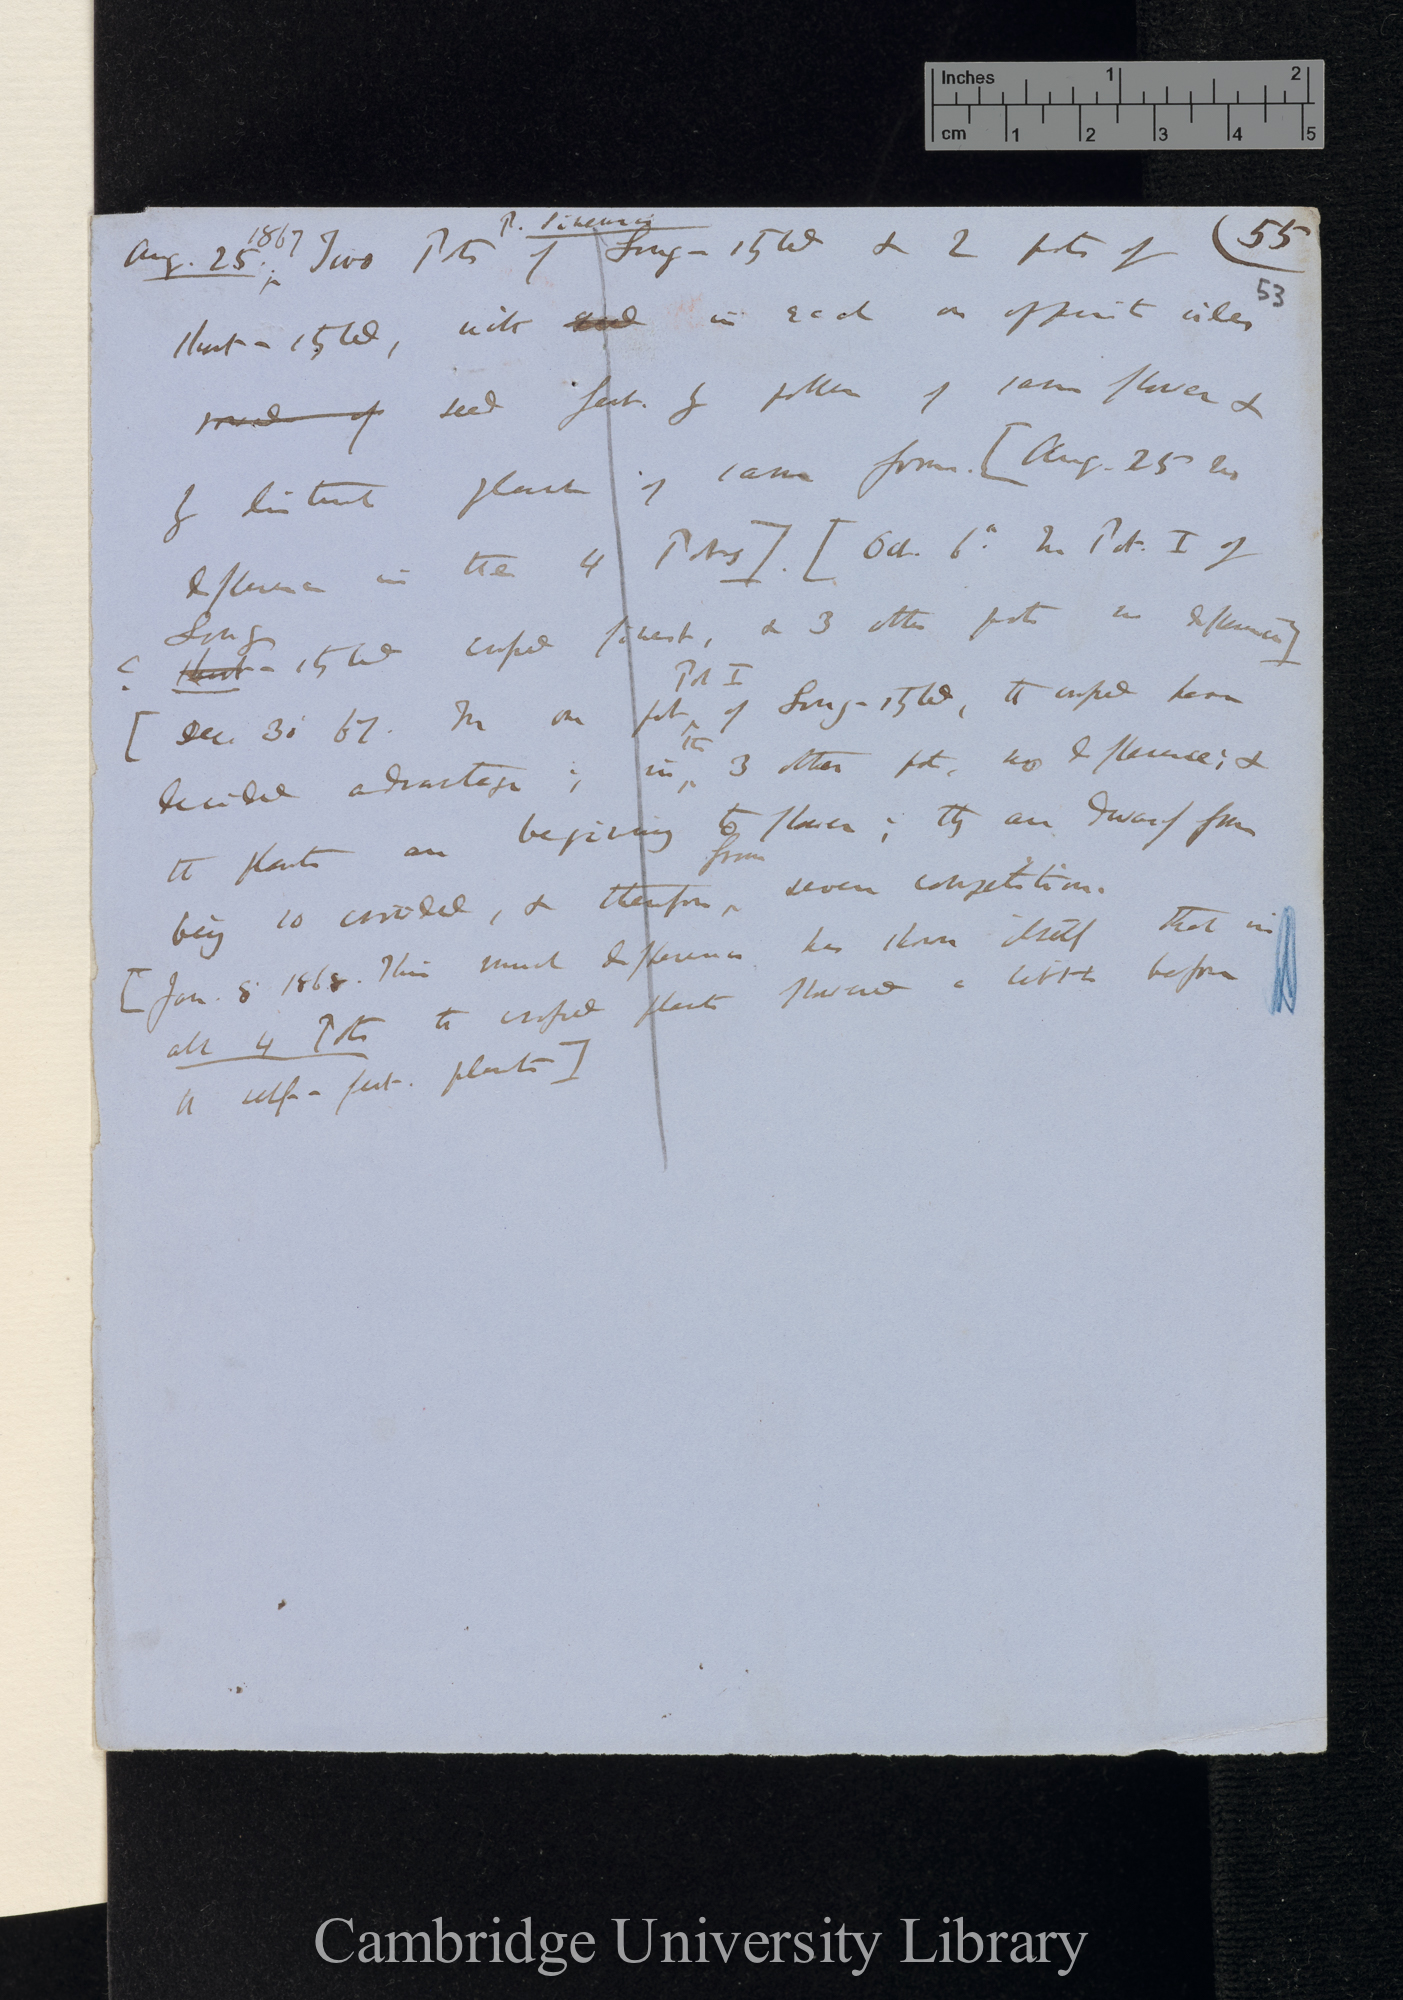 Inches 1 2
cm 1 2 3 4 5
P. Sinensis
(55
53
Aug. 25. 1867 Two Pots of Long-styled & 2 pots of
short-styled, with seed in each on opposite sides
sowed of seed fert. by pollen of same flower &
by distinct plant of same form. [Aug. 25 no
difference in the 4 Pots]. [Oct. 6th In Pot. I of
Long
? Short-styled crossed finest, & 3 other pots no difference]
Pot I
[Dec. 30 67. In one pot of Long-styled, the crossed have
the
decided advantage; in 3 other pots, no difference; &
the plants are beginning to flower; they are dwarf from
from
being so crowded, & therefore severe competition.
[Jan. 8 1868. This much difference has shown itself that in
all 4 Pots the crossed plants flowered a little before
the self-fert. plants]
Cambridge University Library